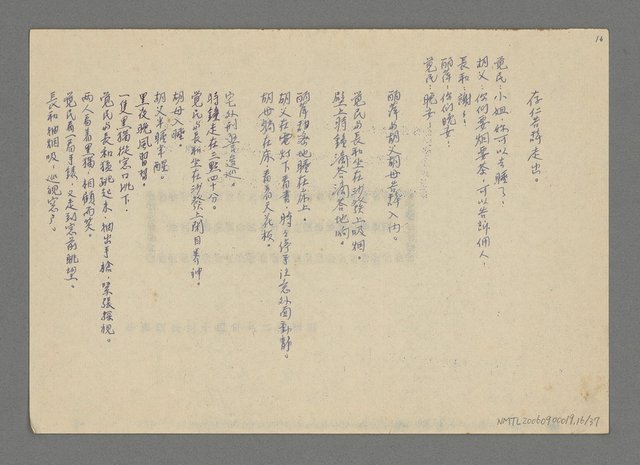 16
存仁告辭走出。
覺民：小姐，妳可以去睡了！
胡父：你們要烟要茶，可以告訴佣人，
長和：謝々！
丽萍：你们晚安！
覺民：晚安——
丽萍与胡父胡母告辞入内。
覺民与長和坐在沙發上吸烟。
壁上時鐘滴答滴答地响。
丽萍抑郁地睡在床上。
胡父在電灯下看書，時々停手注意外面動静。
胡母躺在床，看着天花板。
宅外刑警巡邏。
時鐘走在三點四十分。
覺民与長和坐在沙發上閉目养神。
胡母入睡。
胡父半睡半醒。
黑夜晚風習習。
一隻黑猫從窓口跳下。
覺民与長和猿跳起来，抽出手槍，緊張探視。
两人看着黑猫，相顧而笑。
覺民看一看手錶，又走到窓前眺望。
長和抽烟吸，巡視窓户。
NMTL20060900019,16/37